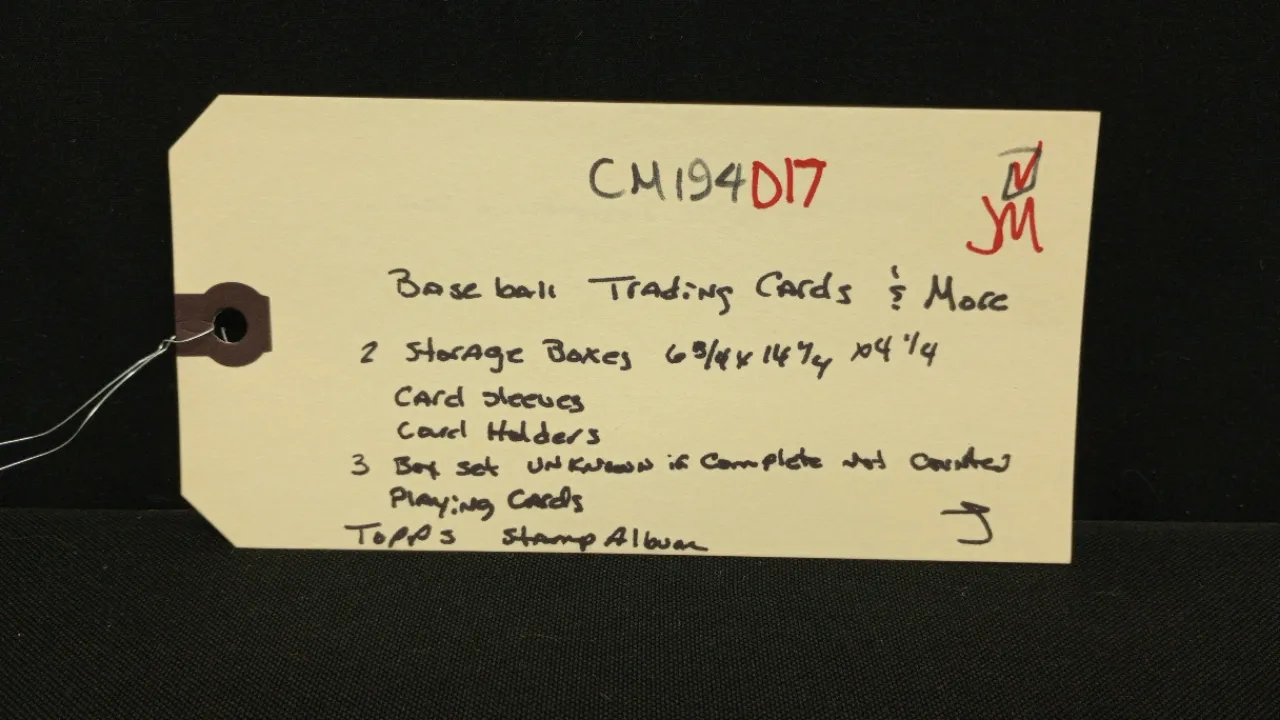 CM194D17
JM
Baseball Trading Cards & More
2 Storage Boxes 6 3/4 x 14 1/4 x 4 1/4
Card Sleeves
Card Holders
3 Box set unknown if complete not counted
Playing Cards
Topps Stamp Album